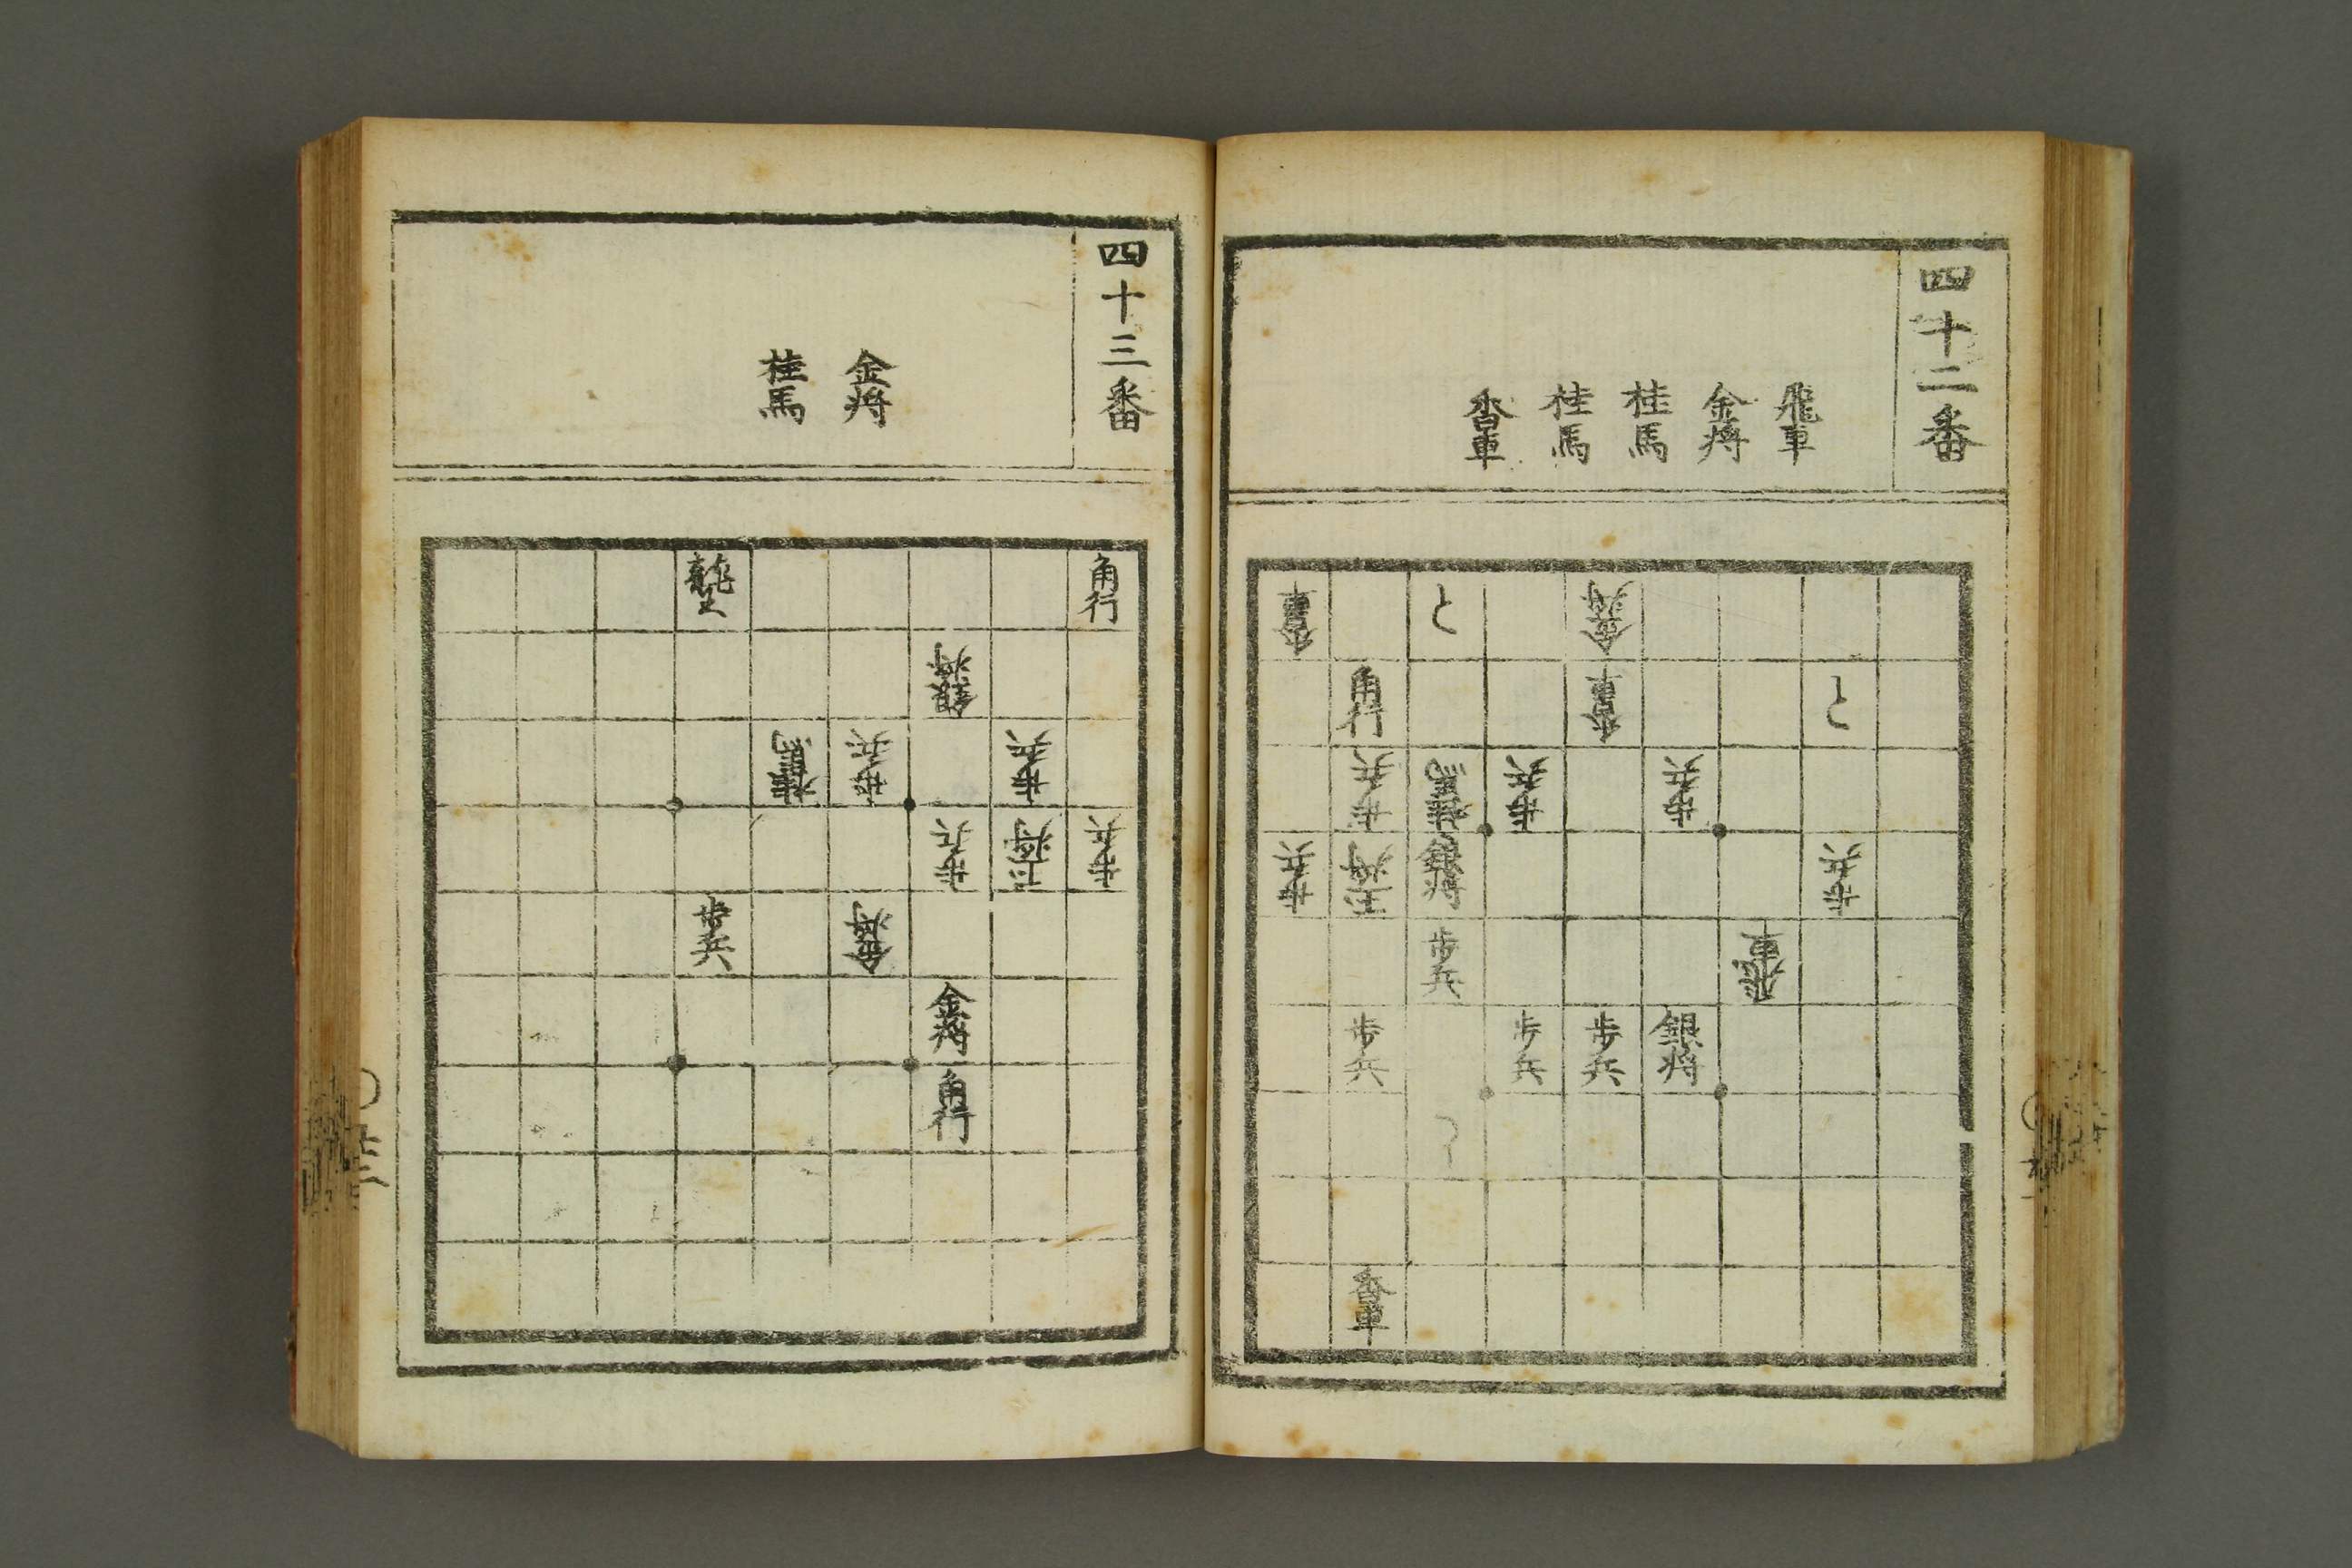 四十二番
飛車
金将
桂馬
桂馬
香車
香車
と
金将
角行
香車
と
歩兵
桂馬
歩兵
歩兵
歩兵
玉将
銀将
歩兵
歩兵
飛車
歩兵
歩兵
歩兵
銀将
と
香車
四十三番
金将
桂馬
龍王
角行
銀将
桂馬
歩兵
歩兵
歩兵
玉将
歩兵
歩兵
金将
金将
角行